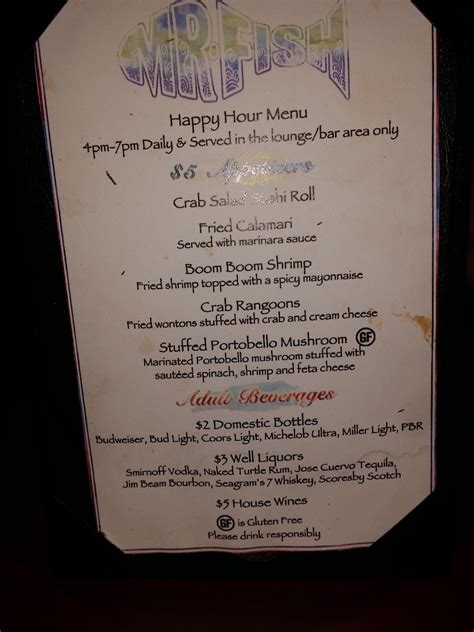 MR. FISH
Happy Hour Menu
4pm-7pm Daily & Served in the lounge/bar area only
$5 Appetizers
Crab Salad Sushi Roll
Fried Calamari
Served with marinara sauce
Boom Boom Shrimp
Fried shrimp topped with a spicy mayonnaise
Crab Rangoons
Fried wontons stuffed with crab and cream cheese
Stuffed Portobello Mushroom GF
Marinated Portobello mushroom stuffed with
sautéed spinach, shrimp and feta cheese
Adult Beverages
$2 Domestic Bottles
Budweiser, Bud Light, Coors Light, Michelob Ultra, Miller Light, PBR
$3 Well Liquors
Smirnoff Vodka, Naked Turtle Rum, Jose Cuervo Tequila,
Jim Beam Bourbon, Seagram's 7 Whiskey, Scoresby Scotch
$5 House Wines
GF is Gluten Free
Please drink responsibly